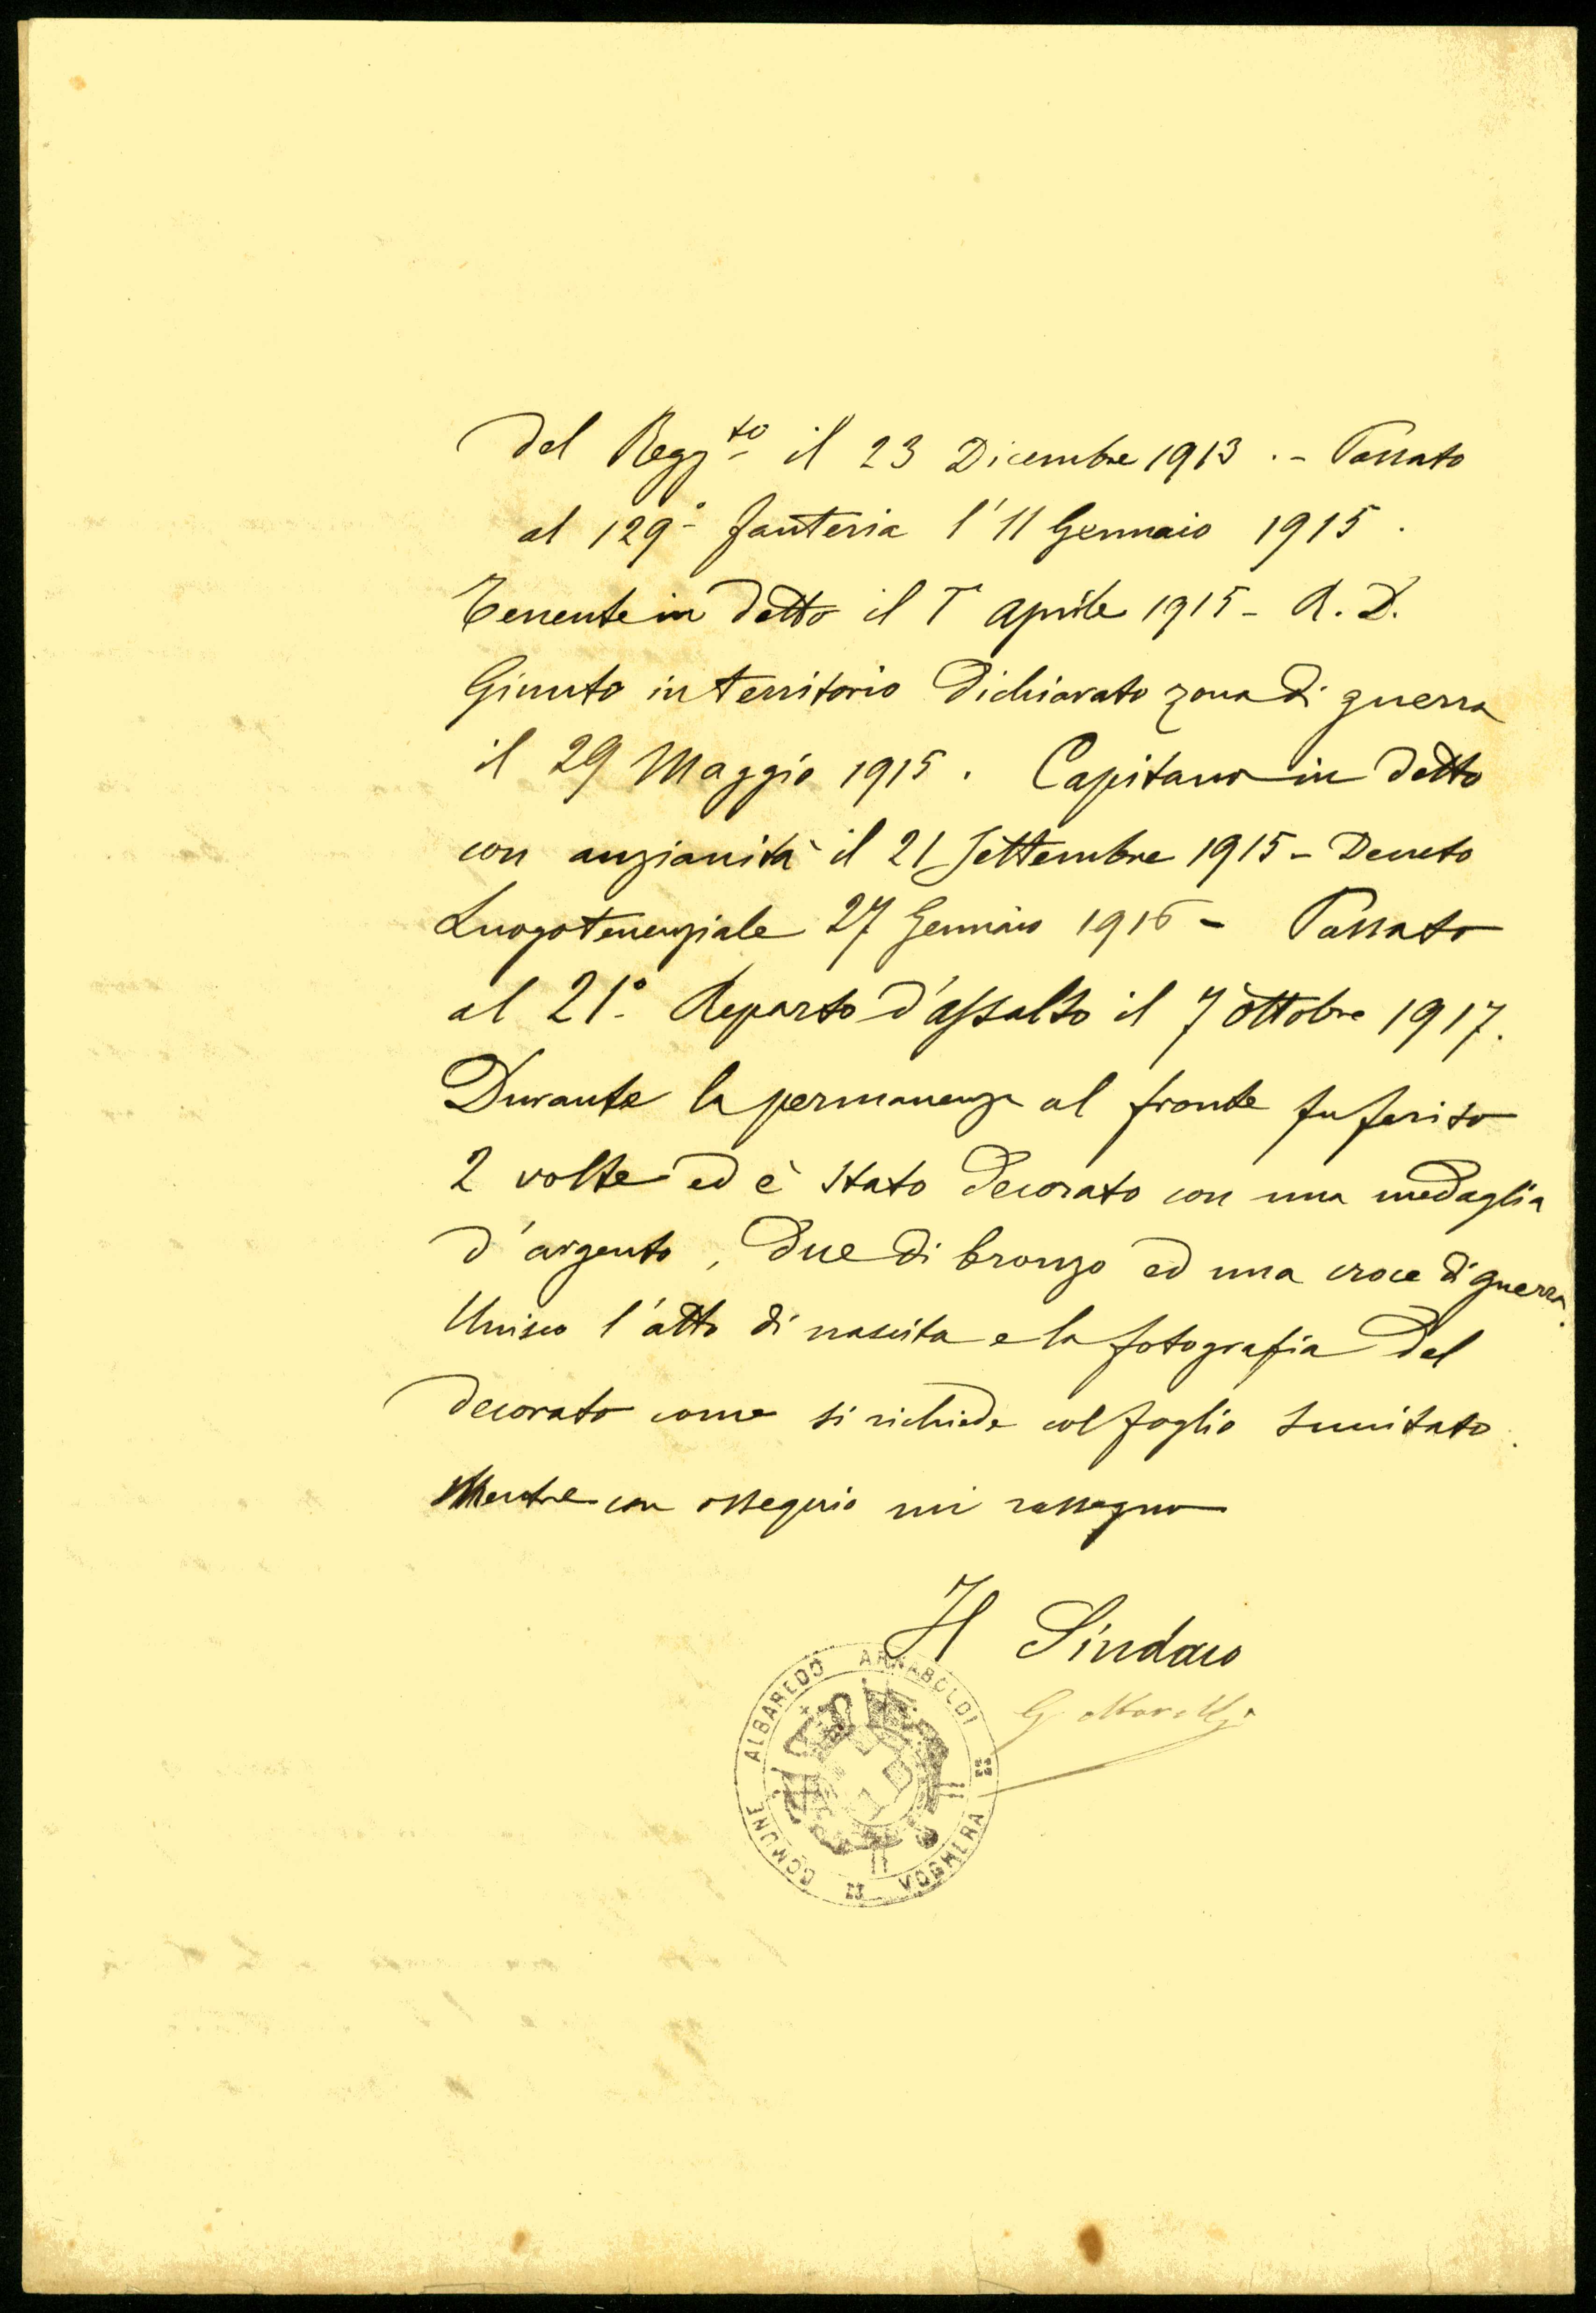 del Regg.to il 23 Dicembre 1913 . - Passato
al 129° fanteria l'11 Gennaio 1915 .
Tenente in detto il 1° Aprile 1915 - R. D.
Giunto in territorio dichiarato zona di guerra
il 29 Maggio 1915 . Capitano in detto
con anzianità il 21 Settembre 1915 - Decreto
Luogotenenziale 27 Gennaio 1916 - Passato
al 21° Reparto d'assalto il 7 Ottobre 1917.
Durante la permanenza al fronte fu ferito
2 volte ed è stato decorato con una medaglia
d'argento , due di bronzo ed una croce di guerra.
Unisco l'atto di nascita e la fotografia del
decorato come si richiede col foglio sucitato .
Mentre con ossequio mi rassegno
Il Sindaco
COMUNE ALBAREDO ARNABOLDI
VOGHERA